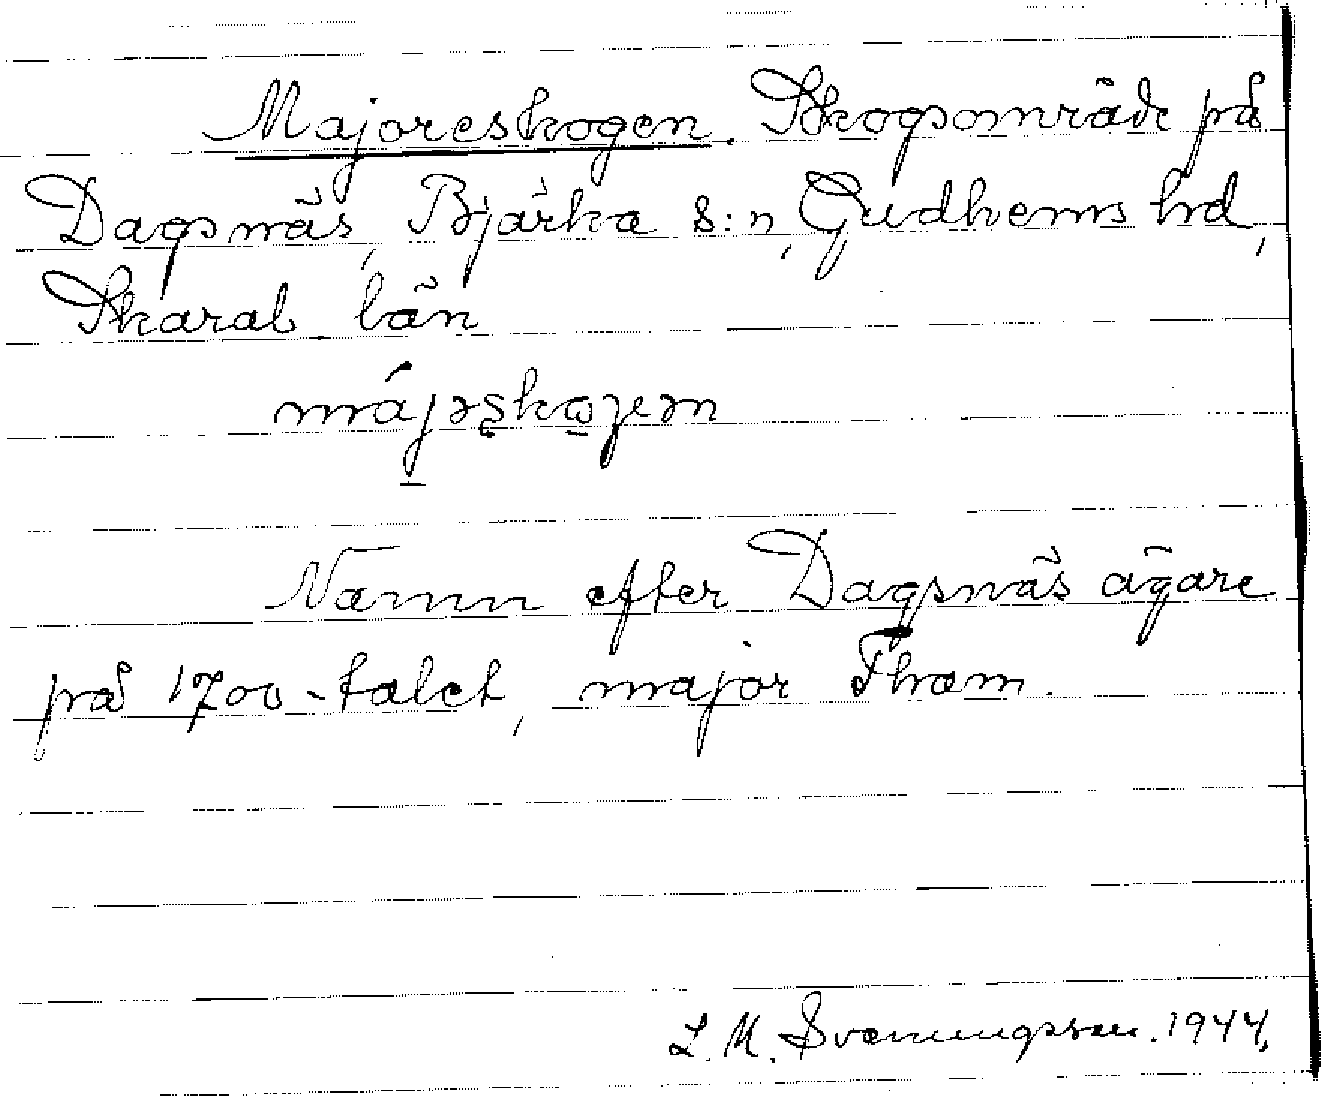 Majoreskogen. Skogsområde på
Dagsnäs, Bjärka s:n, Gudhems hd,
Skarab. län
májəskoɡen
Namn efter Dagsnäs ägare
på 1700-talet, major Tham.
L. M. Svenungsson. 1944.